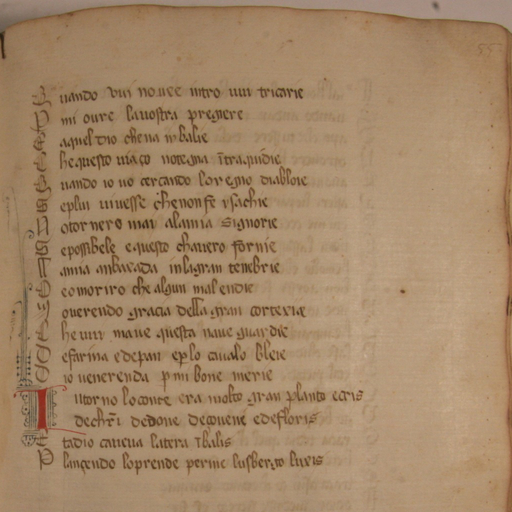 uando vui no uee intro vui tricarie
mi oure la uostra pregiere
aquel dio che na in balie
he questo uiaço no tegna
uando io uo cerçando lo regno diabloie
eplui uiuesse che non fe isachie
otornero mai alamia signorie
epossibele e questo chauero fornie
ama anbaxada in la gran tenebrie
eo moriro che algun mal en die
querendo gracia della gran cortexia
he vui maue questa naue guardie
e farina e de pan e plo caualo bleie
io uenerenda p mi bone merie
Iutorno lo conte era molto gran planto e cris
de chri de done deçouene e de floris
tadio caueua latera ībalis
Plançendo lo prende per me lusbergo luxis
55